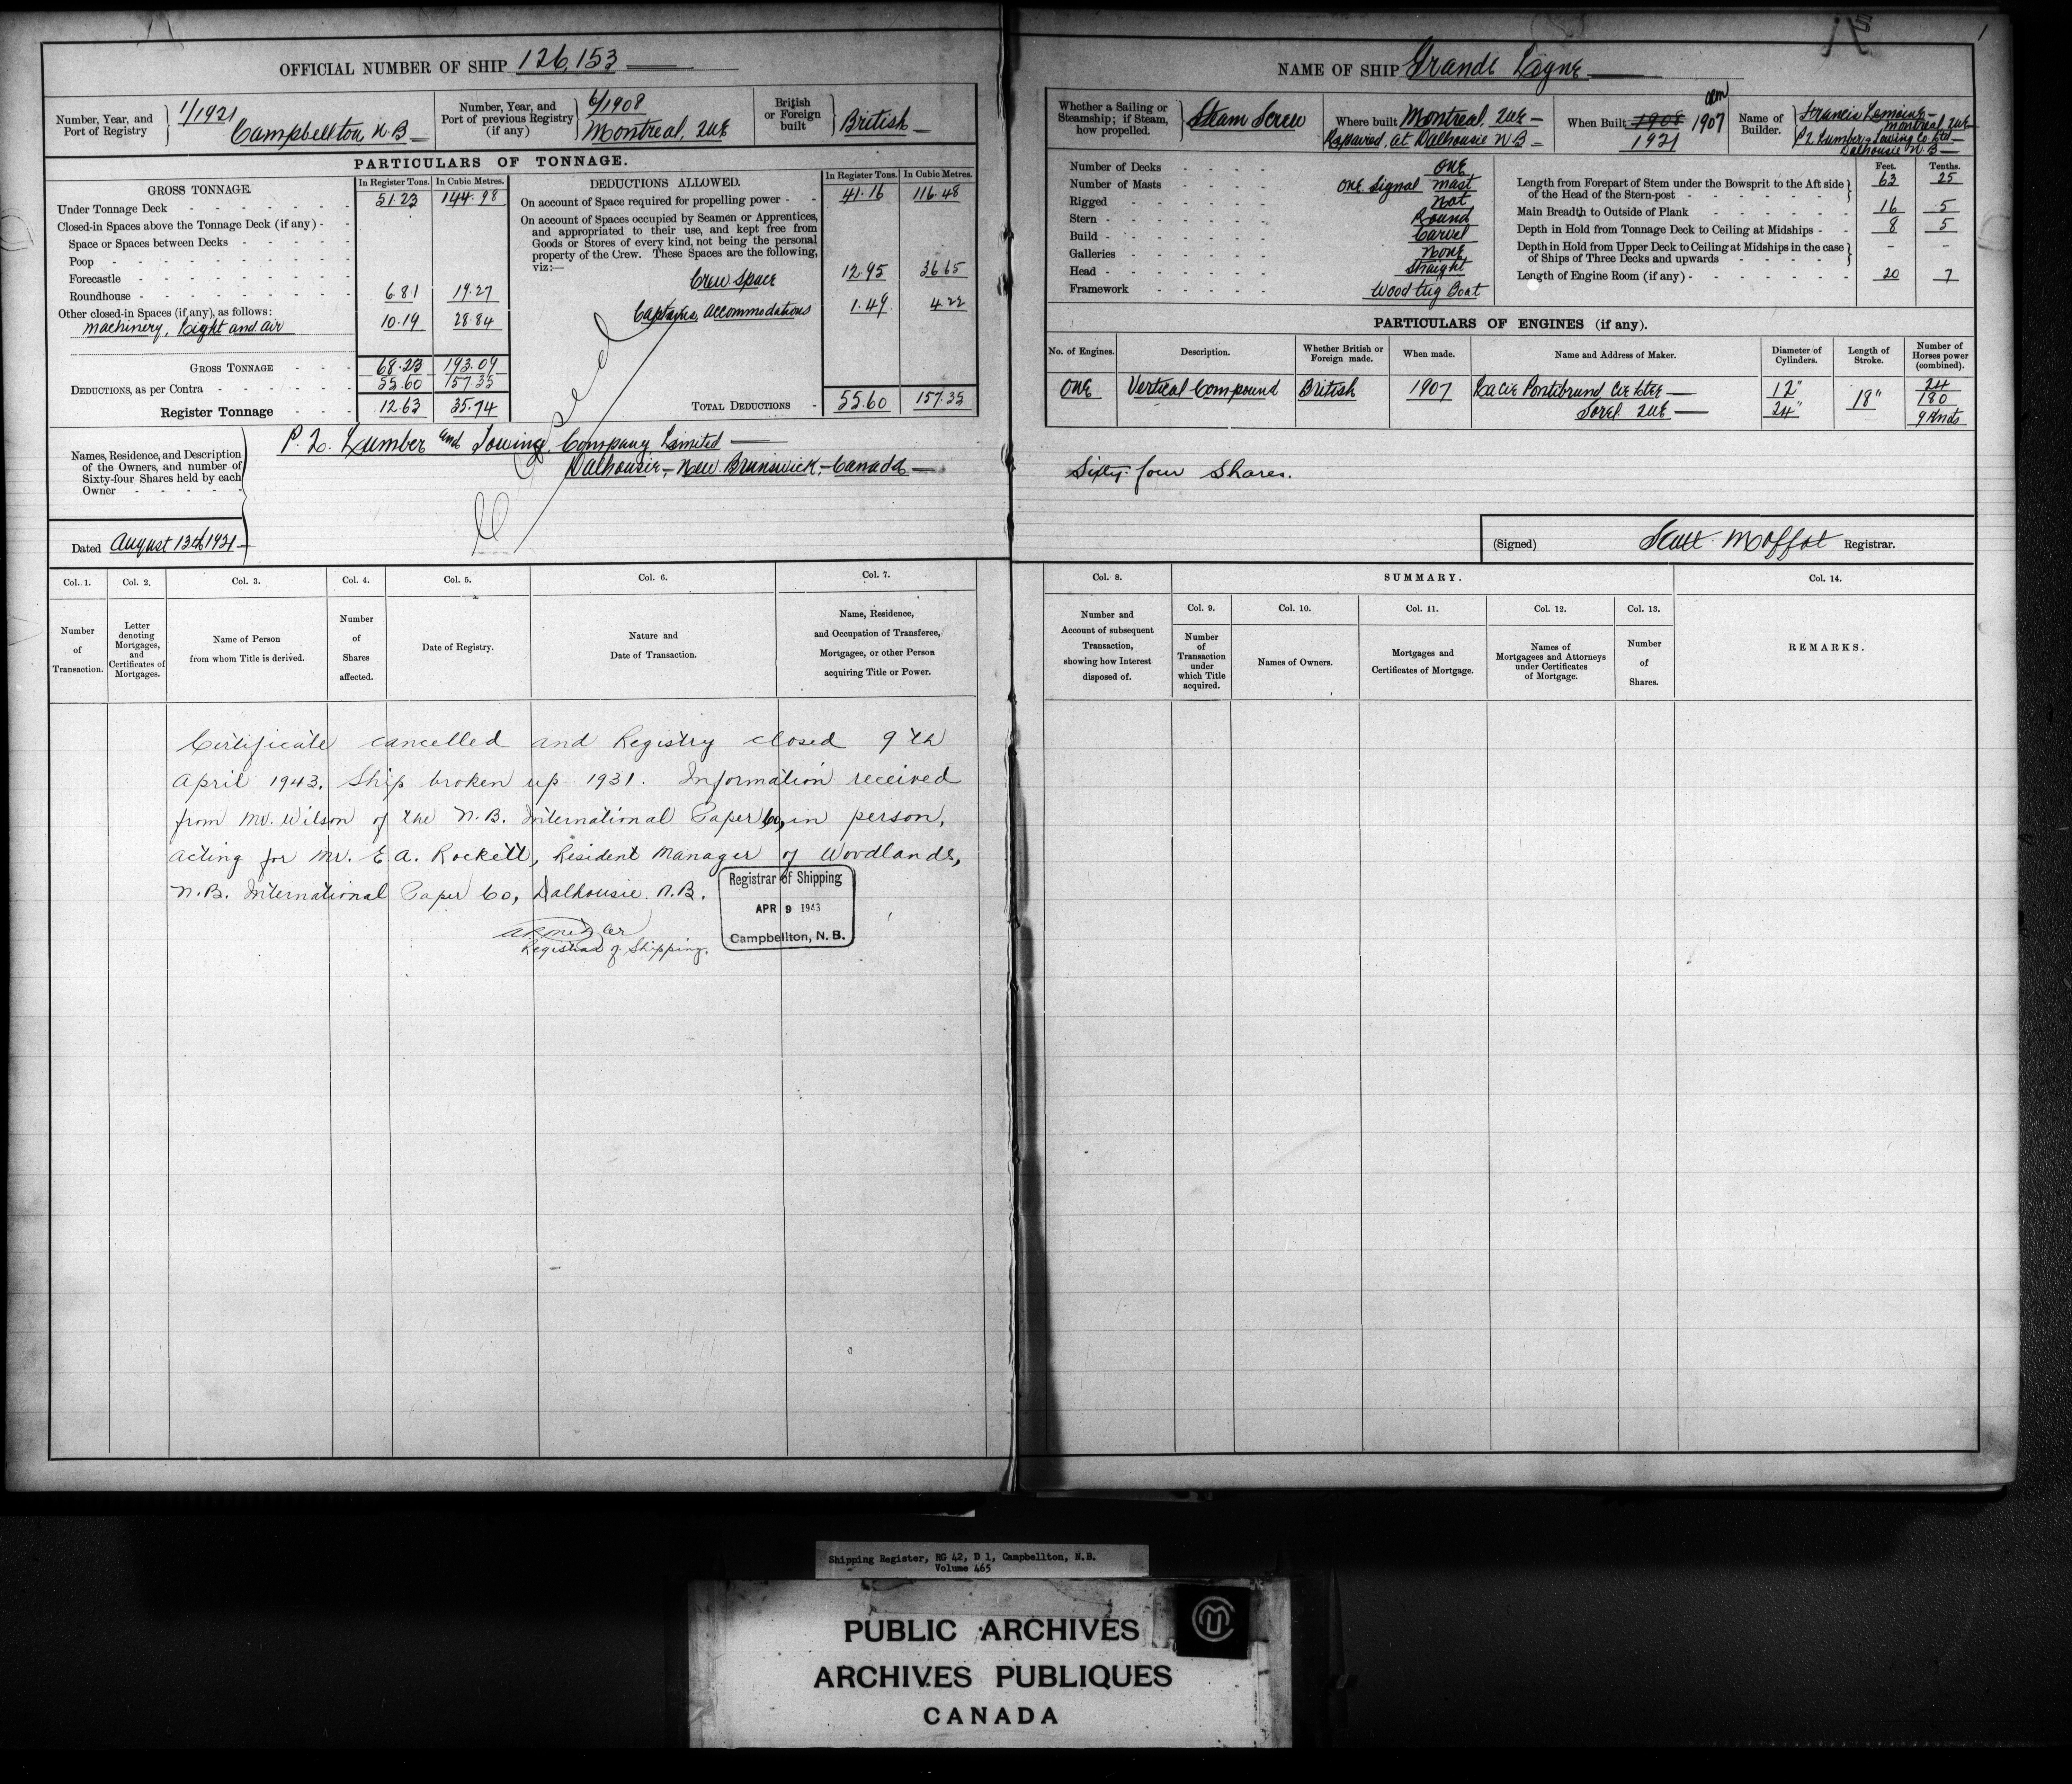 OFFICIAL NUMBER OF SHIP 126,153
Number, Year, and Port of Registry
1/1921
Campbellton N.B
Number, Year, and Port of previous Registry (if any)
6/1908
Montreal, QUE
British or Foreign built
British
PARTICULARS OF TONNAGE.
GROSS TONNAGE.
In Register Tons. In Cubic Metres.
Under Tonnage Deck 51.23 144.98
Closed-in Spaces above the Tonnage Deck (if any)
Space or Spaces between Decks
Poop
Forecastle
Roundhouse 6.81 19.27
Other closed-in Spaces (if any), as follows:
Machinery, Light and air 10.19 28.84
GROSS TONNAGE 68.23 193.09
DEDUCTIONS, as per Contra 55.60 157.35
Register Tonnage 12.63 35.74
DEDUCTIONS ALLOWED.
In Register Tons. In Cubic Metres.
On account of Space required for propelling power 41.16 116.48
On account of Spaces occupied by Seamen or Apprentices,
and appropriated to their use, and kept free from
Goods or Stores of every kind, not being the personal
property of the Crew. These Spaces are the following,
viz:—
Crew Space 12.95 36.65
Captains accommodations 1.49 4.22
TOTAL DEDUCTIONS 55.60 157.35
Closed
Names, Residence, and Description
of the Owners, and number of
Sixty-four Shares held by each
Owner
P. L. Lumber and Towing Company Limited
Dalhousie, New Brunswick, Canada
Dated August 13th 1921
Col. 1. Col. 2. Col. 3. Col. 4. Col. 5. Col. 6. Col. 7.
Number of Transaction.
Letter denoting Mortgages, and Certificates of Mortgages.
Name of Person from whom Title is derived.
Number of Shares affected.
Date of Registry.
Nature and Date of Transaction.
Name, Residence, and Occupation of Transferee, Mortgagee, or other Person acquiring Title or Power.
Certificate cancelled and Registry closed 9th
April 1943. Ship broken up 1931. Information received
from Mr. Wilson of the N.B. International Paper Co, in person,
acting for Mr. E A. Rockett, Resident Manager of Woodlands,
N.B. International Paper Co, Dalhousie. N.B.
Registrar of Shipping.
Registrar of Shipping
APR 9 1943
Campbellton, N. B.
1
NAME OF SHIP Grande Logne
Whether a Sailing or Steamship; if Steam, how propelled.
Steam Screw
Where built Montreal, QUE
Repaired, at Dalhousie N B
When Built 1908 1907
1921
Name of Builder.
Francis Lemoine
Montreal QUE
P L Lumber & Towing Co Ltd
Dalhousie N.B
Number of Decks ONE
Number of Masts ONE Signal Mast
Rigged Not
Stern Round
Build Carvel
Galleries None
Head Straight
Framework Wood tug Boat
Feet. Tenths.
Length from Forepart of Stem under the Bowsprit to the Aft side of the Head of the Stern-post 63 25
Main Breadth to Outside of Plank 16 5
Depth in Hold from Tonnage Deck to Ceiling at Midships 8 5
Depth in Hold from Upper Deck to Ceiling at Midships in the case of Ships of Three Decks and upwards - -
Length of Engine Room (if any) 20 7
PARTICULARS OF ENGINES (if any).
No. of Engines. Description. Whether British or Foreign made. When made. Name and Address of Maker. Diameter of Cylinders. Length of Stroke. Number of Horses power (combined).
ONE Vertical Compound British 1907 12" 18" 24
Sorel QUE 24" 180
9 Knots
Sixty-four Shares.
(Signed) Scott Moffat Registrar.
Col. 8. SUMMARY. Col. 14.
Col. 9. Col. 10. Col. 11. Col. 12. Col. 13.
Number and Account of subsequent Transaction, showing how Interest disposed of.
Number of Transaction under which Title acquired.
Names of Owners.
Mortgages and Certificates of Mortgage.
Names of Mortgagees and Attorneys under Certificates of Mortgage.
Number of Shares.
REMARKS.
Shipping Register, RG 42, D 1, Campbellton, N.B.
Volume 465
PUBLIC ARCHIVES
ARCHIVES PUBLIQUES
CANADA